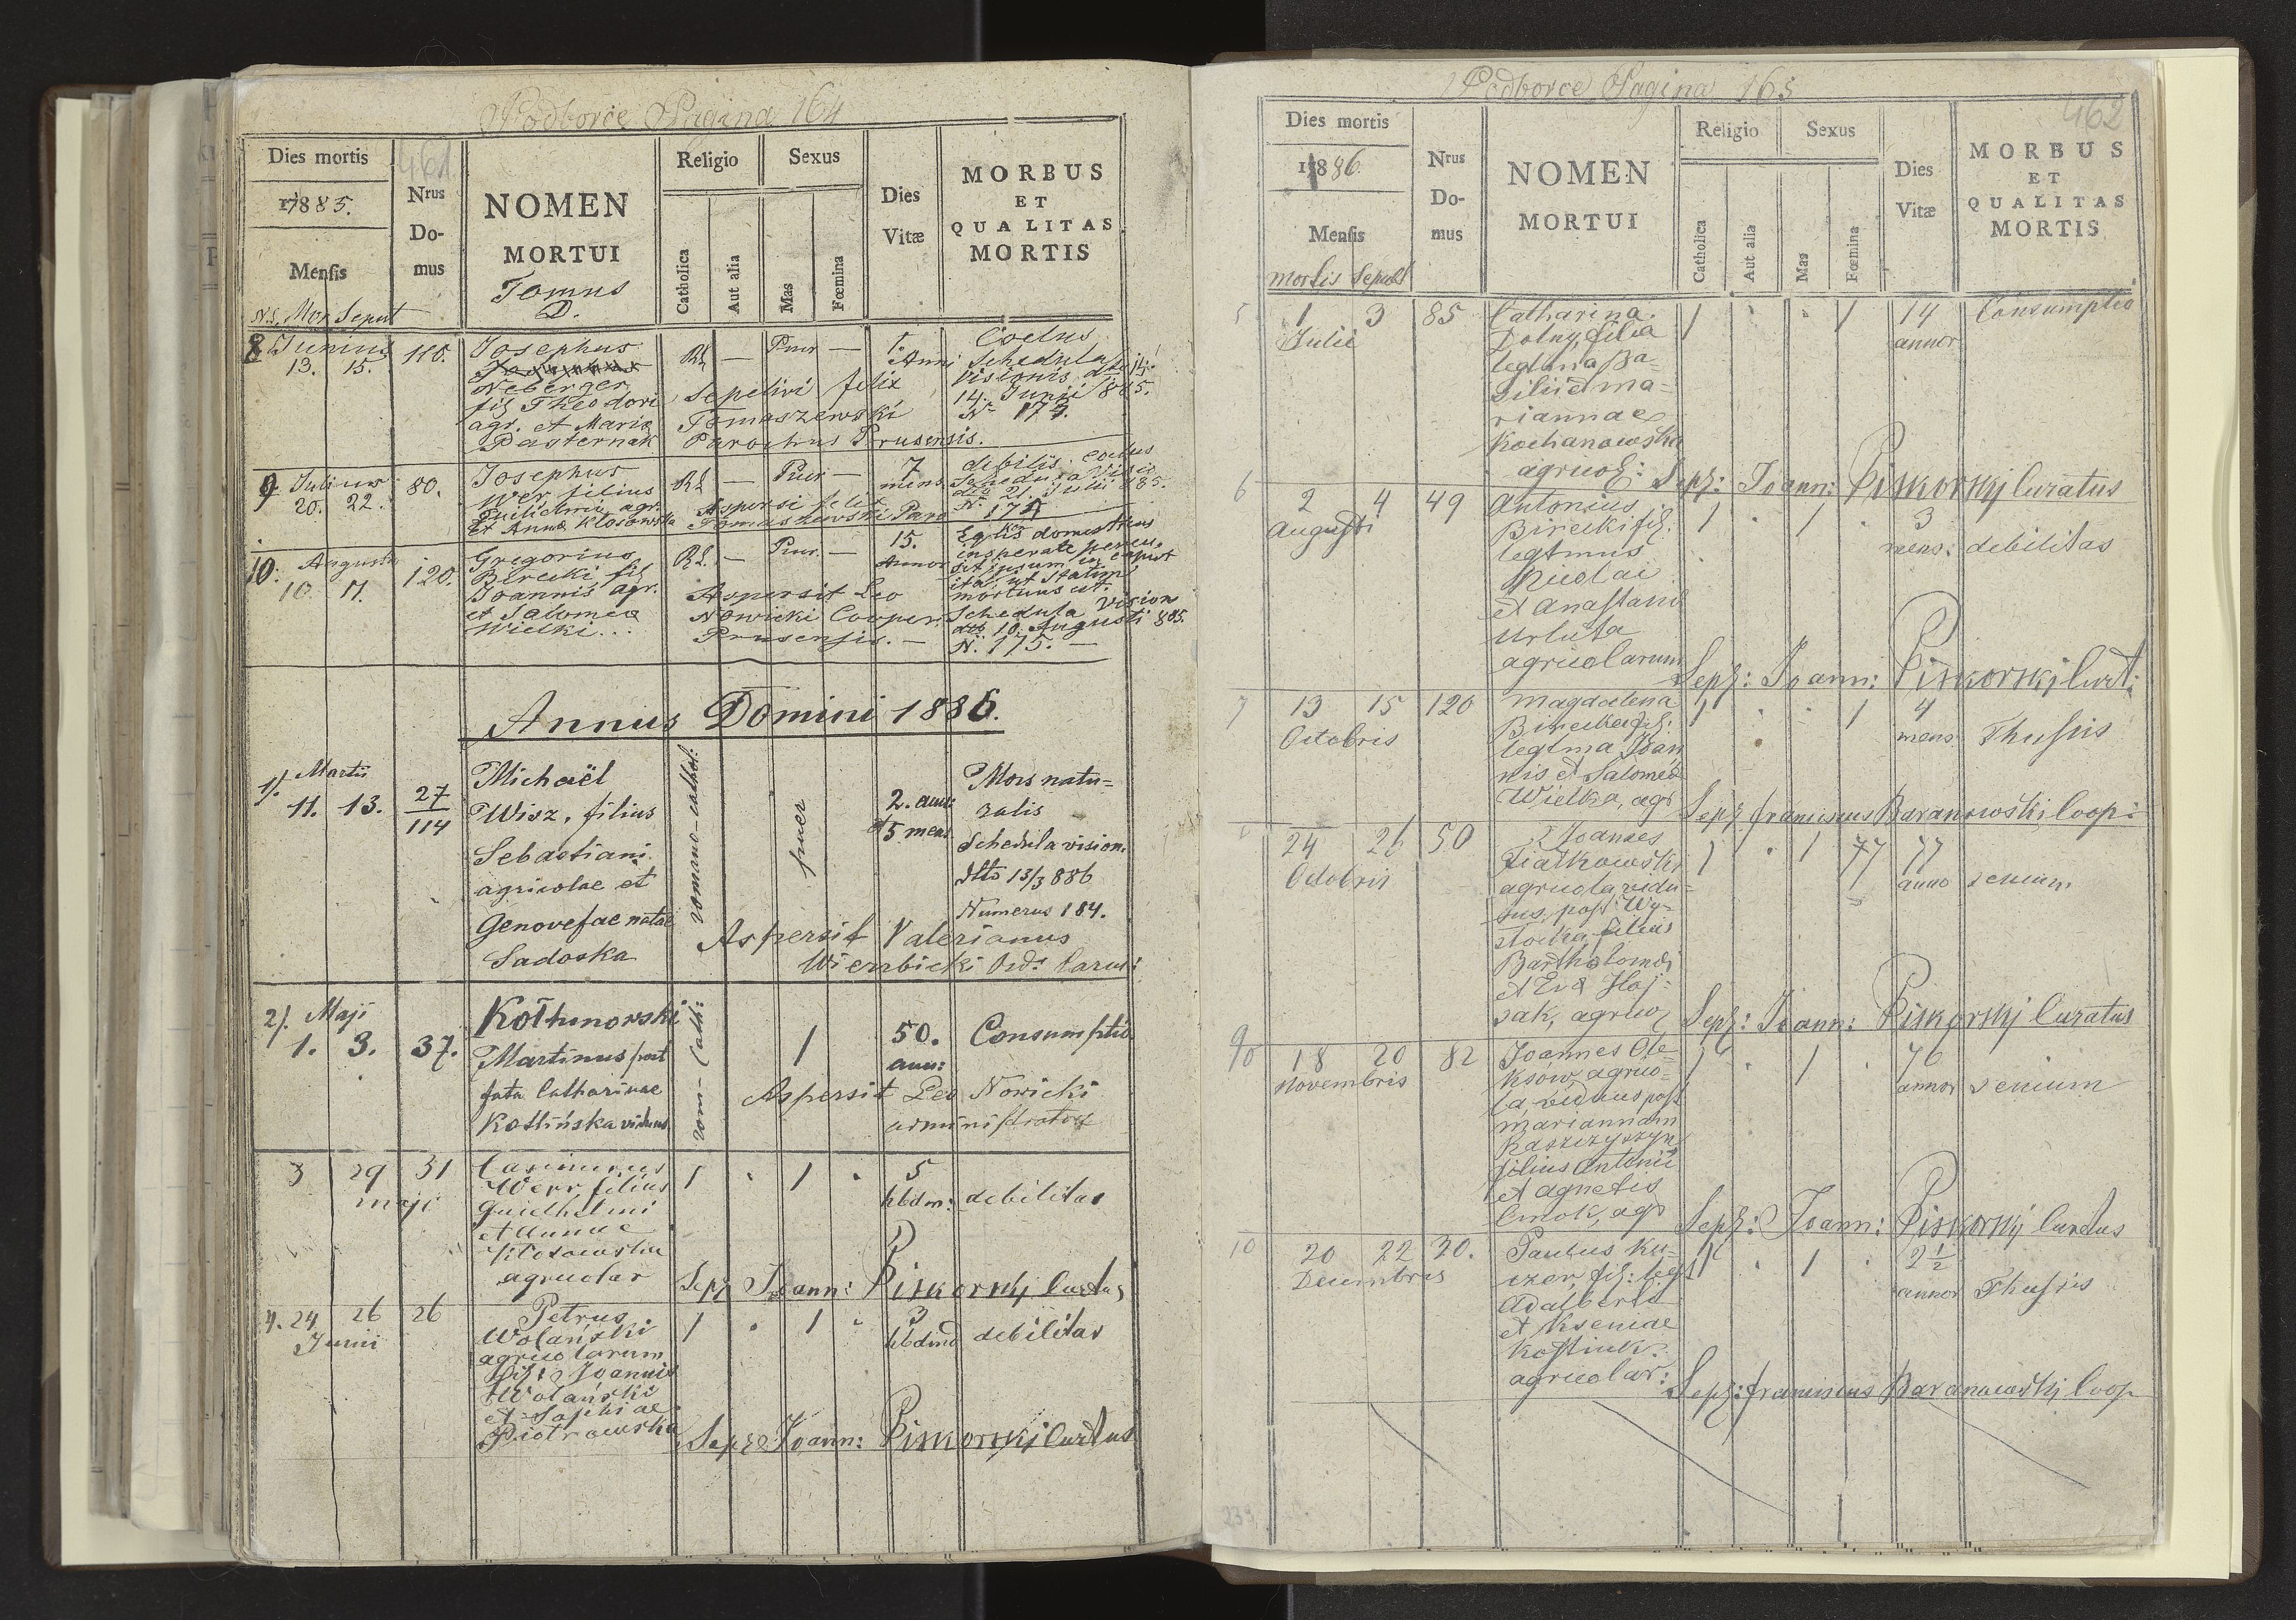 Podborce Pagina 164
461
Dies mortis
Nrus Domus
NOMEN MORTUI
Religio
Sexus
Dies Vitæ
MORBUS ET QUALITAS MORTIS
1885.
Mensis
Catholica
Aut alia
Mas
Fœmina
Tomus D.
N.S. Mor. Sepult
8 Junius 13. 15. 110. Josephus
Neberger
fil Theodori
agr. et Maria
Pasternak
RL — Puer — 1. Anni
Coctus
Schedula
Visionis dto
14. Junii 1885.
N. 174.
Sepelivi felix
Tomaszewski
Parochus Prusensis.
9 Julius 20. 22. 80. Josephus
Wer filius
Guilielmi agr.
et Anna Klosowska
RL — Puer — 7 mens.
debilis. Coctus
Schedula Visio
dto 21. Julii 885.
Aspersi felix
Tomaszewski Paro
10. Augusti 10. 11. 120. Gregorius
Birecki fil
Joannis agr.
et Salomea
Wielki...
RL. — Puer — 15. Annor
Equs domesticus
insperate percus
sit ipsum in caput
ita, ut statim
mortuus est.
Schedula Vision
dto 10. Augusti 885.
N. 175. —
Aspersit Leo
Nowicki Cooper.
Prusensis. —
Annus Domini 1886.
1/. Martii 11. 13. 27/114 Michaël
Wisz, filius
Sebastiani
agricolae et
Genovefae natae
Sadoska
romano-cathol:
puer
2. ann:
et 5 mens
Mors natu-
ralis
Schedula vision.
dtto 13/3 886
Numerus 184.
Aspersit Valerianus
Wierzbicki Ord.
2/. Maji 1. 3. 37. Kothunowski
Martinus post
fata Catharinae
Kostińska viduus
rom-Cath:
1
50. ann:
Consumptio
Aspersit Leo Nowicki
administrator
3 29 31 Casimirus
maji
Werr filius
Guielhelmi
et Annae
Klosowska
agricolar
1 . 1 . 5 hbdm: debilitas
Sep: Joann: Piskorskj Curatus
4. 24 26 26 Petrus
Junii
Wolański
agricolarum
fil: Joannis
Wolański
et Sophiae
Piotrowska
1 . 1 . 3 hbdmd debilitas
Sep: Joann: Piskorskj Curatus
Podborce Pagina 165
462
Dies mortis
Nrus Domus
NOMEN MORTUI
Religio
Sexus
Dies Vitæ
MORBUS ET QUALITAS MORTIS
1886.
Mensis
mortis Sepult
Catholica
Aut alia
Mas
Fœmina
5 1 3 85 Catharina
Julii
Dolny, filia
legtima Ba-
silii et Ma-
riannae
Kochanowska
agricol:
1 . . 1 14 annor
Consumptio
Sep: Joann: Piskorskj Curatus
6 2 4 49 Antonius
Augusti
Birecki fil.
legtmus
Nicolai
et Anastasiae
Urluta
agricolarum
1 . 1 . 3 mens: debilitas
Sep: Joann: Piskorskj Curt:
7 13 15 120 Magdalena
Octobris
Birecka fil:
legtma Joan
nis et Salomea
Wielka, agr
1 . . 1 4 mens Thusis
Sep: franciscus Baranowski Coop:
8 24 26 50 Joannes
Octobris
Fiatkowski
agricola vidu-
us, post Wy-
socka, filius
Bartholomei
et Eva Haj-
sak, agrico
1 . 1 77 77 anno senium
Sep: Joann: Piskorskj Curatus
9 18 20 82 Joannes Ole-
Novembris
ksów, agrico-
la, viduus post
Mariannam
Raszczyszyn
filius Antonii
et Agnetis
Cmok, agr
1 . 1 76 annor senium
Sep: Joann: Piskorskj Curatus
10 20 22 30. Paulus Ku-
Decembris
czer, fil: legt
Adalberti
et Kseniae
Kostiuk.
agricolar:
1 . 1 . 2½ annor Thusis
Sep: franciscus Baranowskj Coop
239